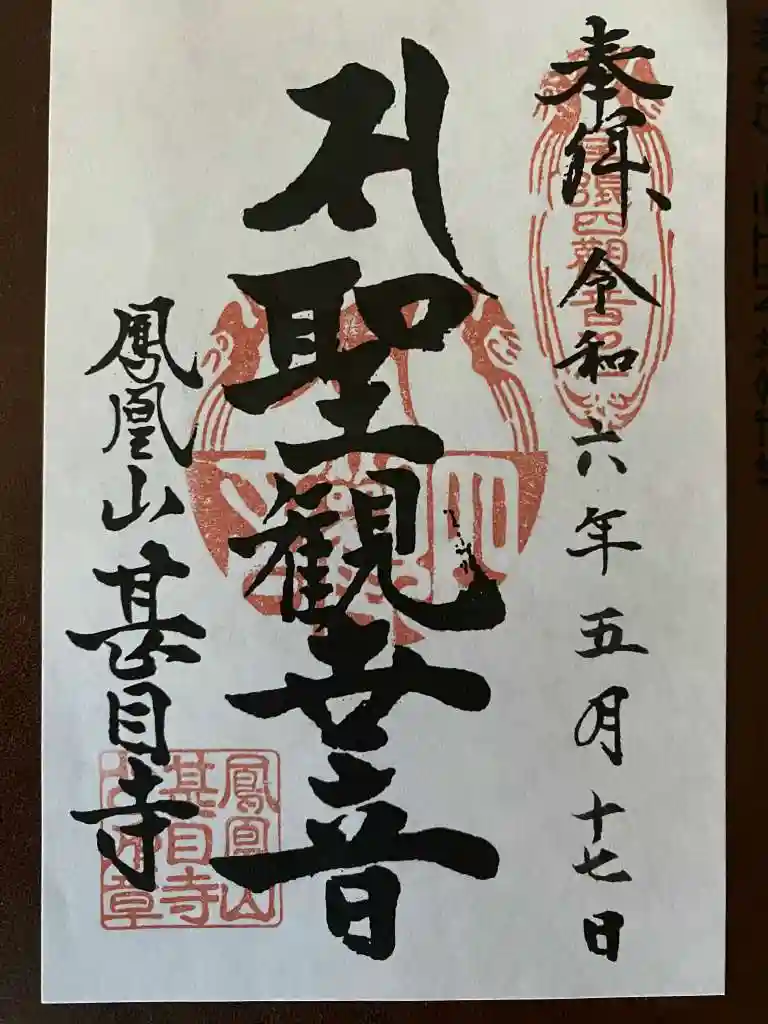 奉拝 令和六年五月十七日
尾張四觀音
聖観世音
鳳凰山 甚目寺
鳳凰山
甚目寺